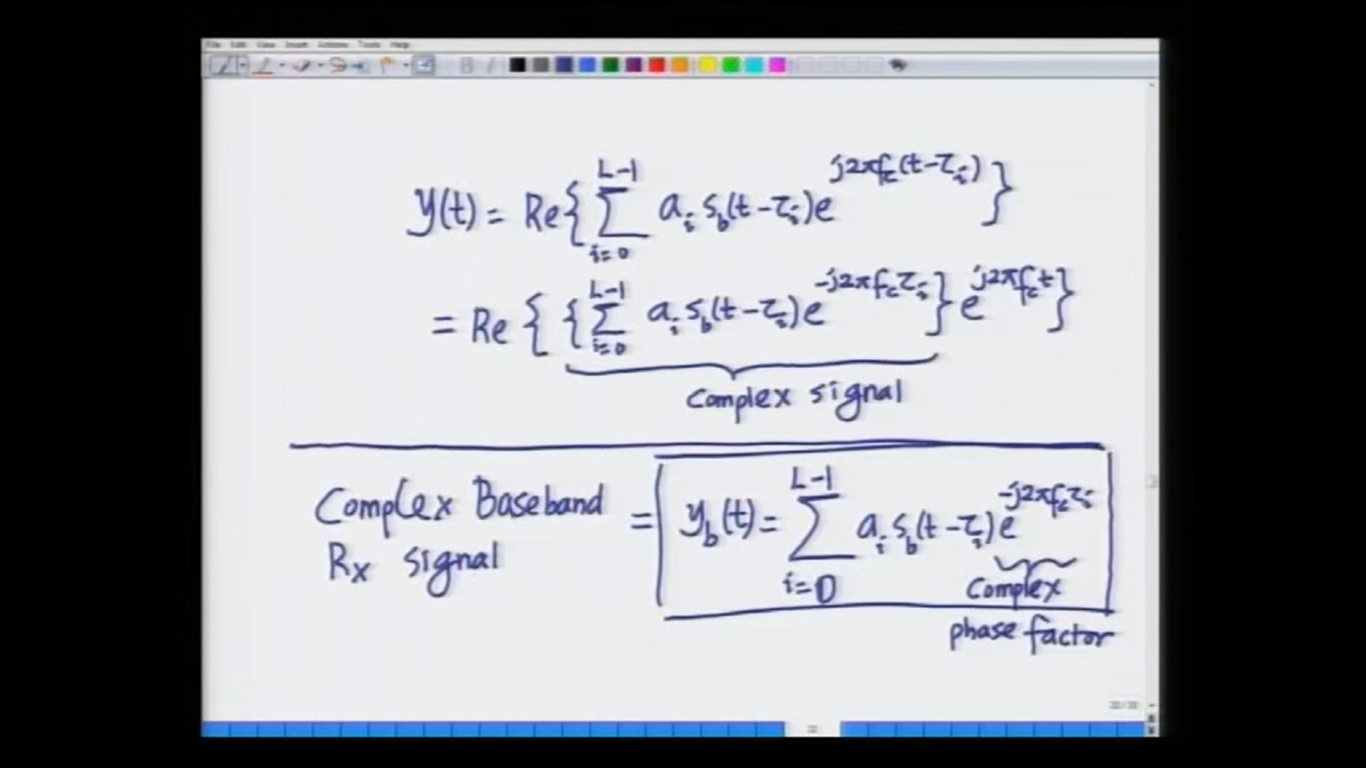 File Edit View Insert Actions Tools Help
y(t) = Re{ ∑_{i=0}^{L-1} a_i s_b(t-τ_i) e^{j2πf_c(t-τ_i)} }
= Re{ { ∑_{i=0}^{L-1} a_i s_b(t-τ_i) e^{-j2πf_cτ_i} } e^{j2πf_ct} }
Complex signal
Complex Baseband
Rx signal
= y_b(t) = ∑_{i=0}^{L-1} a_i s_b(t-τ_i) e^{-j2πf_cτ_i}
Complex
phase factor